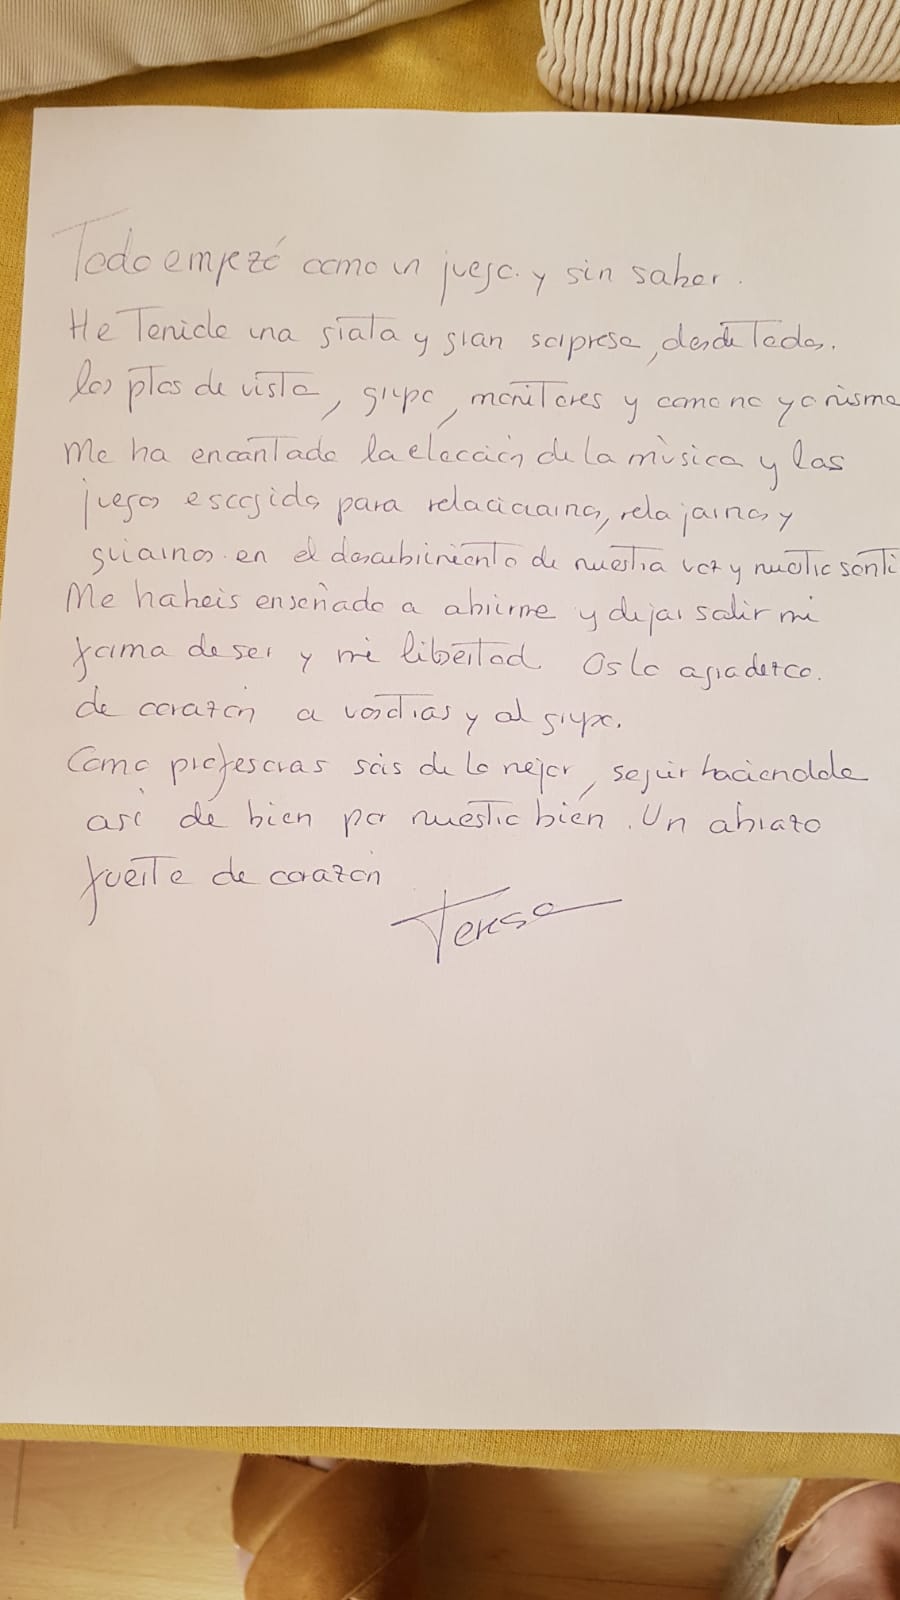 Todo empezó como un juego. y sin saber.
He Tenido una grata y gran sorpresa, desde Todos.
los ptos de vista, grupo, monitores y como no yo misma
Me ha encantado la elección de la música y las
juegos escogidos para relacionarnos, relajarnos y
guiarnos. en el descubrimiento de nuestra voz y nuestro senti
Me habeis enseñado a abrirme y dejar salir mi
forma de ser y mi libertad. Os lo agradezco.
de corazón a vosotras y al grupo.
Como profesoras sois de lo mejor, seguir haciendolo
así de bien por nuestro bien. Un abrazo
fuerte de corazón
Teresa